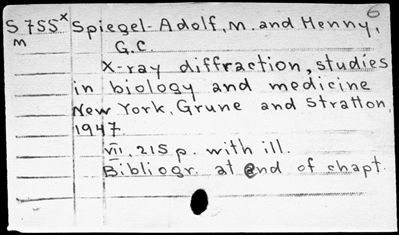 6
S 755x Spiegel-Adolf, M. and Henny,
m G.C.
X-ray diffraction, studies
in biology and medicine
New York, Grune and Stratton,
1947.
VII, 215 p. with ill.
Bibliogr. at end of chapt.